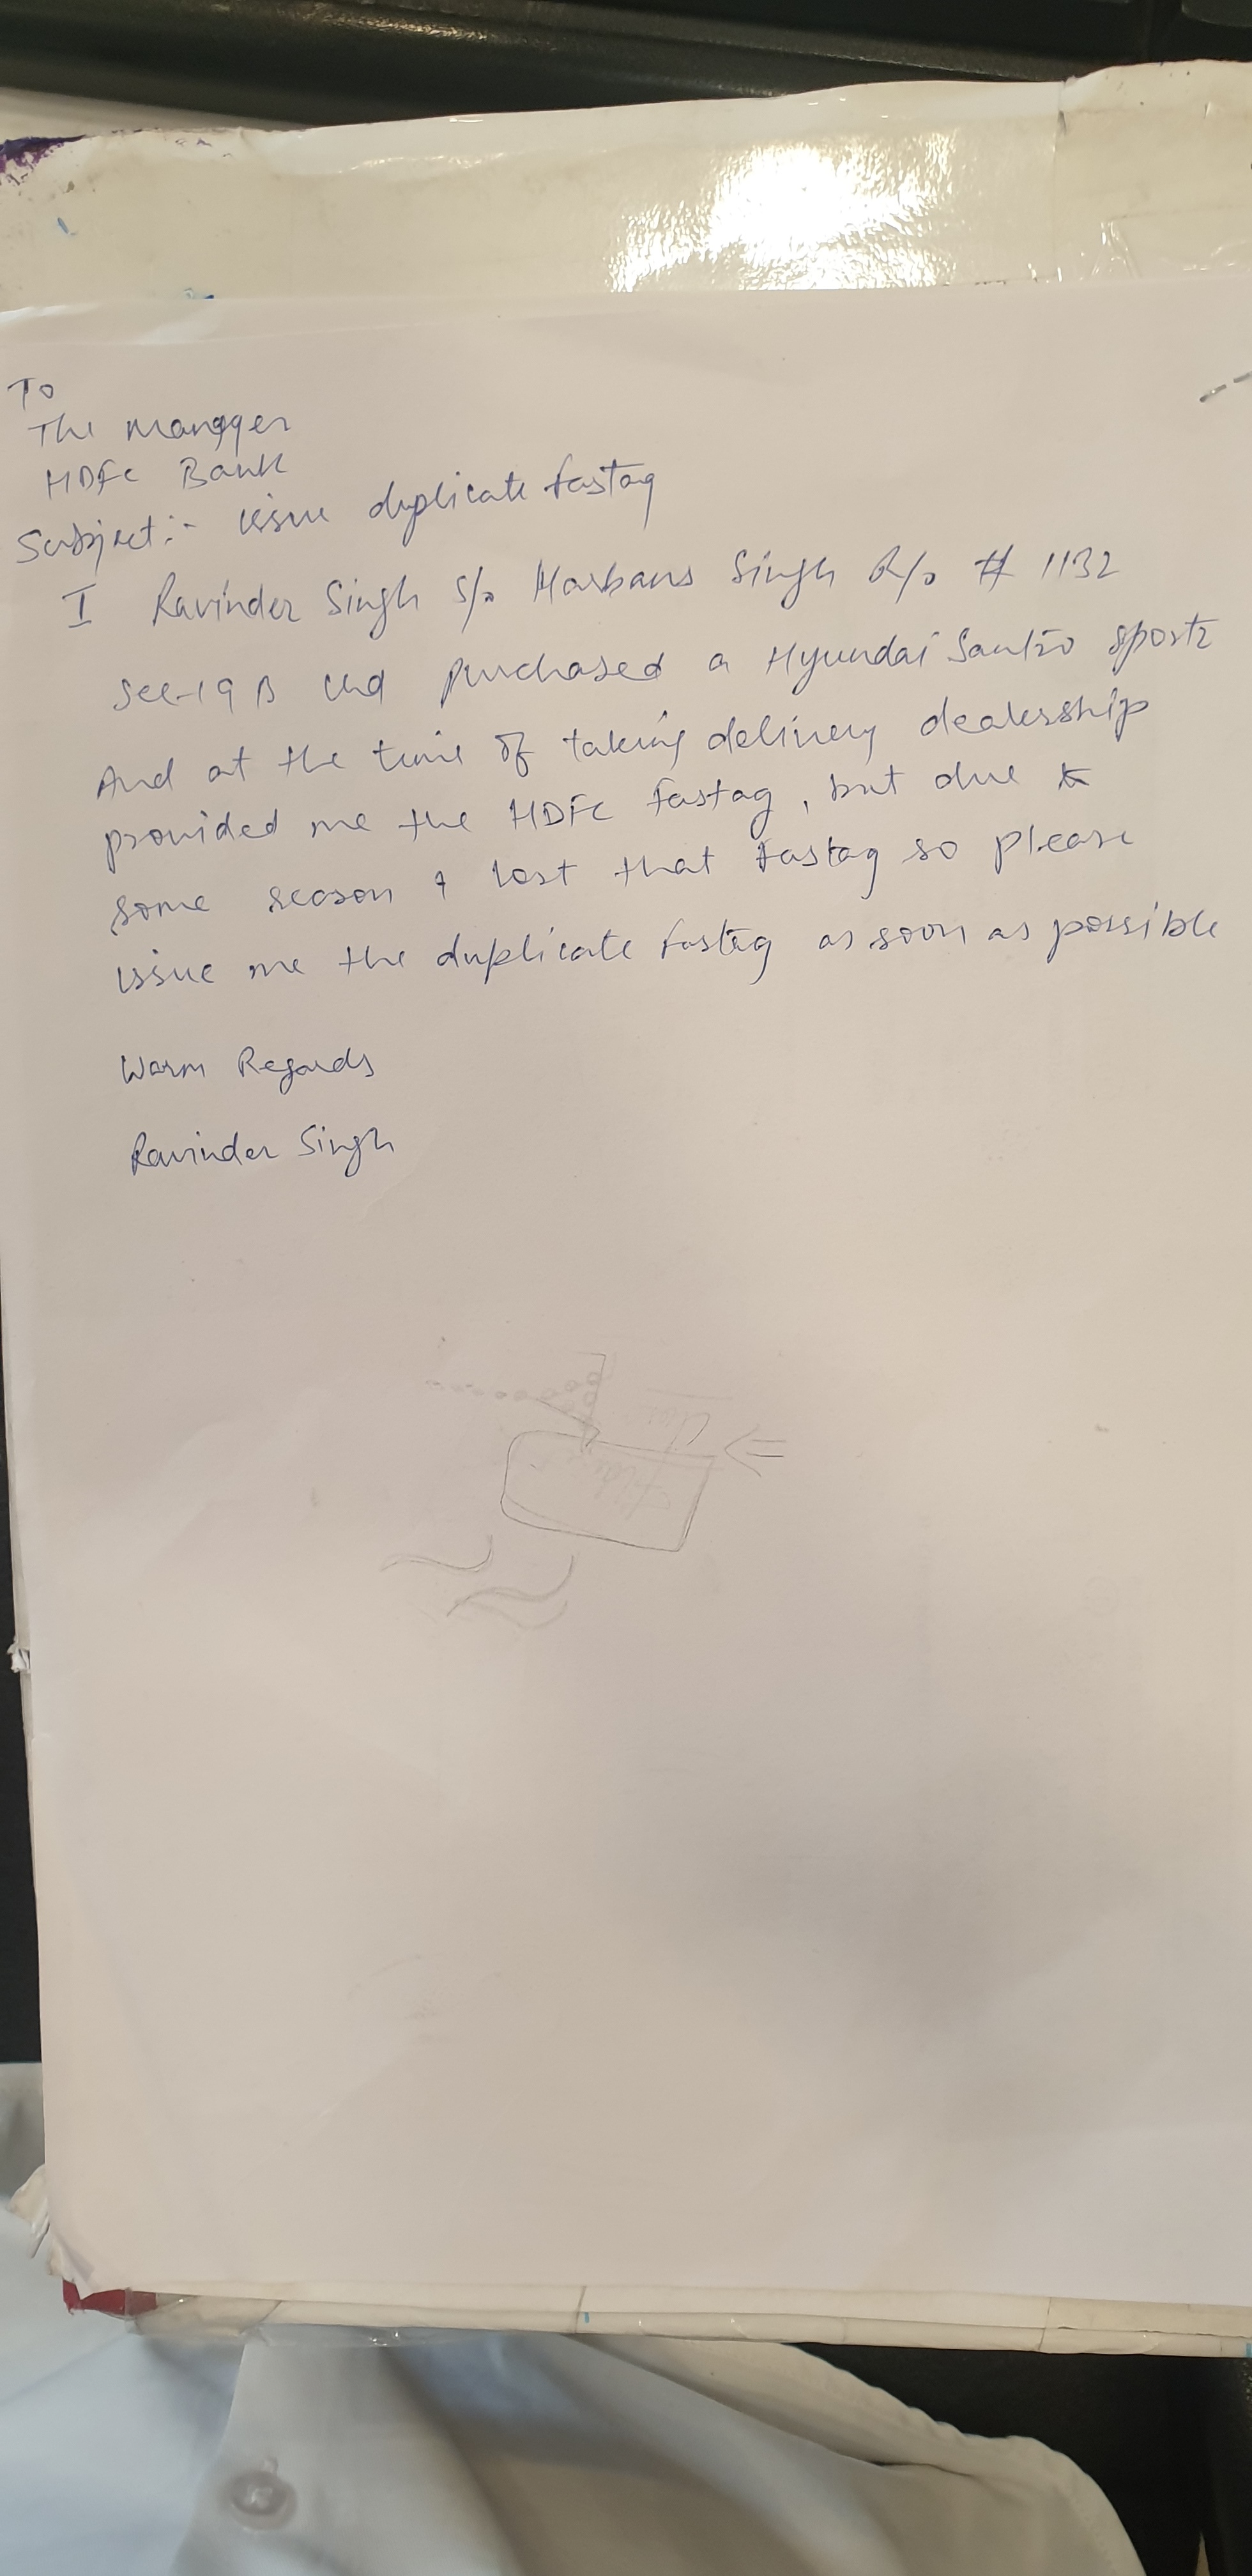 To
The manager
HDFC Bank
Subject:- issue duplicate fastag
I Ravinder Singh S/o Harbans Singh R/o # 1132
Sec-19 B Chd purchased a Hyundai Santro sportz
And at the time of taking delivery dealership
provided me the HDFC Fastag, but due to
some reason I lost that Fastag so please
issue me the duplicate Fastag as soon as possible
Warm Regards
Ravinder Singh